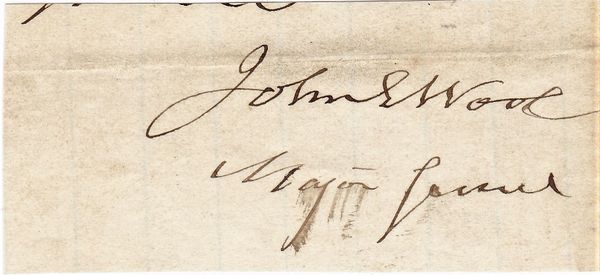 John E Wool
Major General